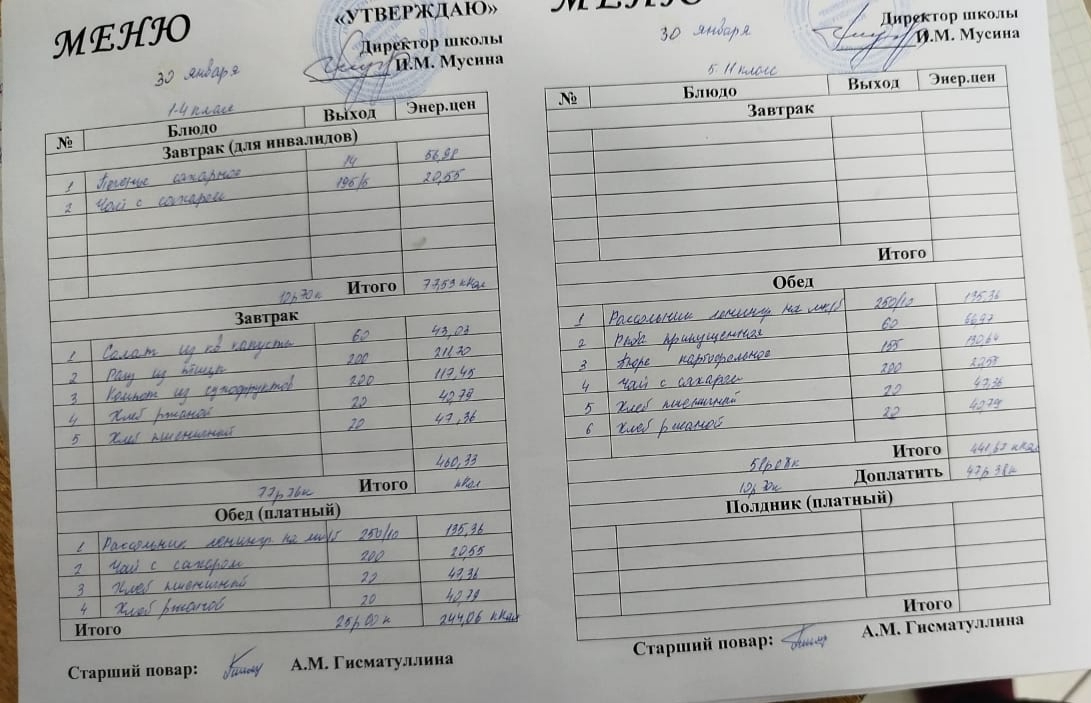 МЕНЮ
«УТВЕРЖДАЮ»
Директор школы
И.М. Мусина
30 января
1-4 класс
№ Блюдо Выход Энер.цен
Завтрак (для инвалидов)
1 Печенье сахарное 14 56,98
2 Чай с сахаром 195/5 20,55
12р70к Итого 77,53 кКал
Завтрак
1 Салат из кв капусты 60 43,03
2 Рагу из птицы 200 211,70
3 Компот из сухофруктов 200 117,45
4 Хлеб ржаной 20 40,79
5 Хлеб пшеничный 20 47,36
460,33
77р36к Итого кКал
Обед (платный)
1 Рассольник ленингр на мк/б 250/10 135,36
2 Чай с сахаром 200 20,55
3 Хлеб пшеничный 20 47,36
4 Хлеб ржаной 20 40,79
Итого 25р00к 244,06 кКал
Старший повар: А.М. Гисматуллина
МЕНЮ
Директор школы
И.М. Мусина
30 января
5-11 класс
№ Блюдо Выход Энер.цен
Завтрак
Итого
Обед
1 Рассольник ленингр на мк/б 250/10 135,36
2 Рыба припущенная 60 66,97
3 Пюре картофельное 155
4 Чай с сахаром 200 20,55
5 Хлеб пшеничный 20 47,36
6 Хлеб ржаной 20 40,79
Итого кКал
Доплатить 47р38к
Полдник (платный)
Итого
Старший повар: А.М. Гисматуллина